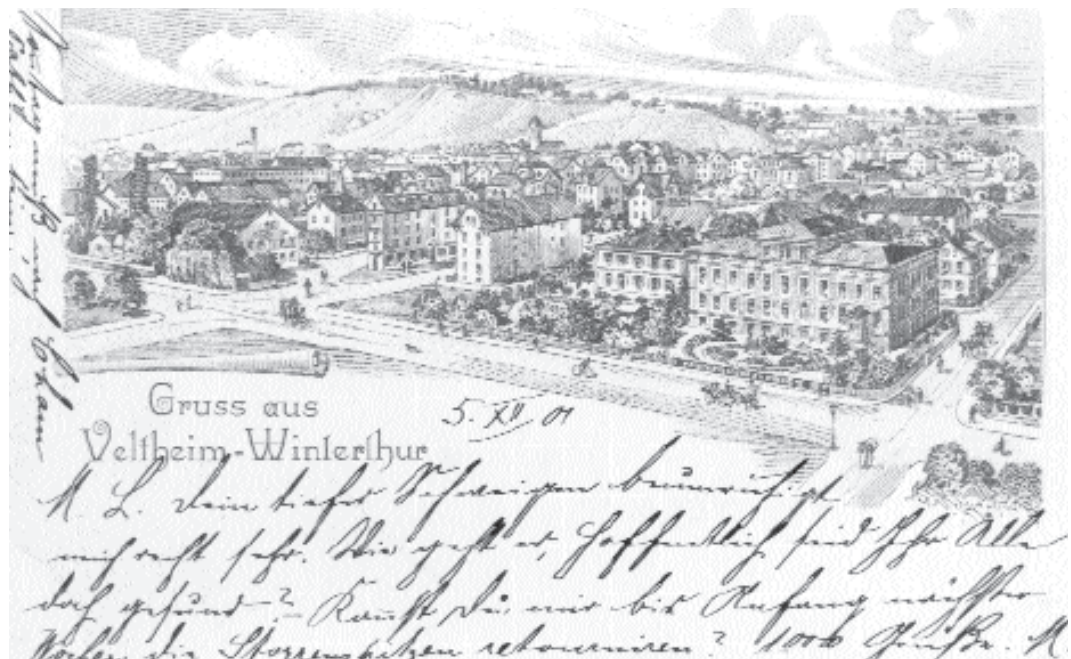 Gruss aus
Veltheim-Winterthur
5. XII 01
M. L. Dein tiefes Schweigen beunruhigt
mich recht sehr. Wie geht es, hoffentlich seid Ihr Alle
doch gesund? Kannst Du mir bis Anfang nächster
Woche die Storrenspitzen retournieren? 1000
Cham